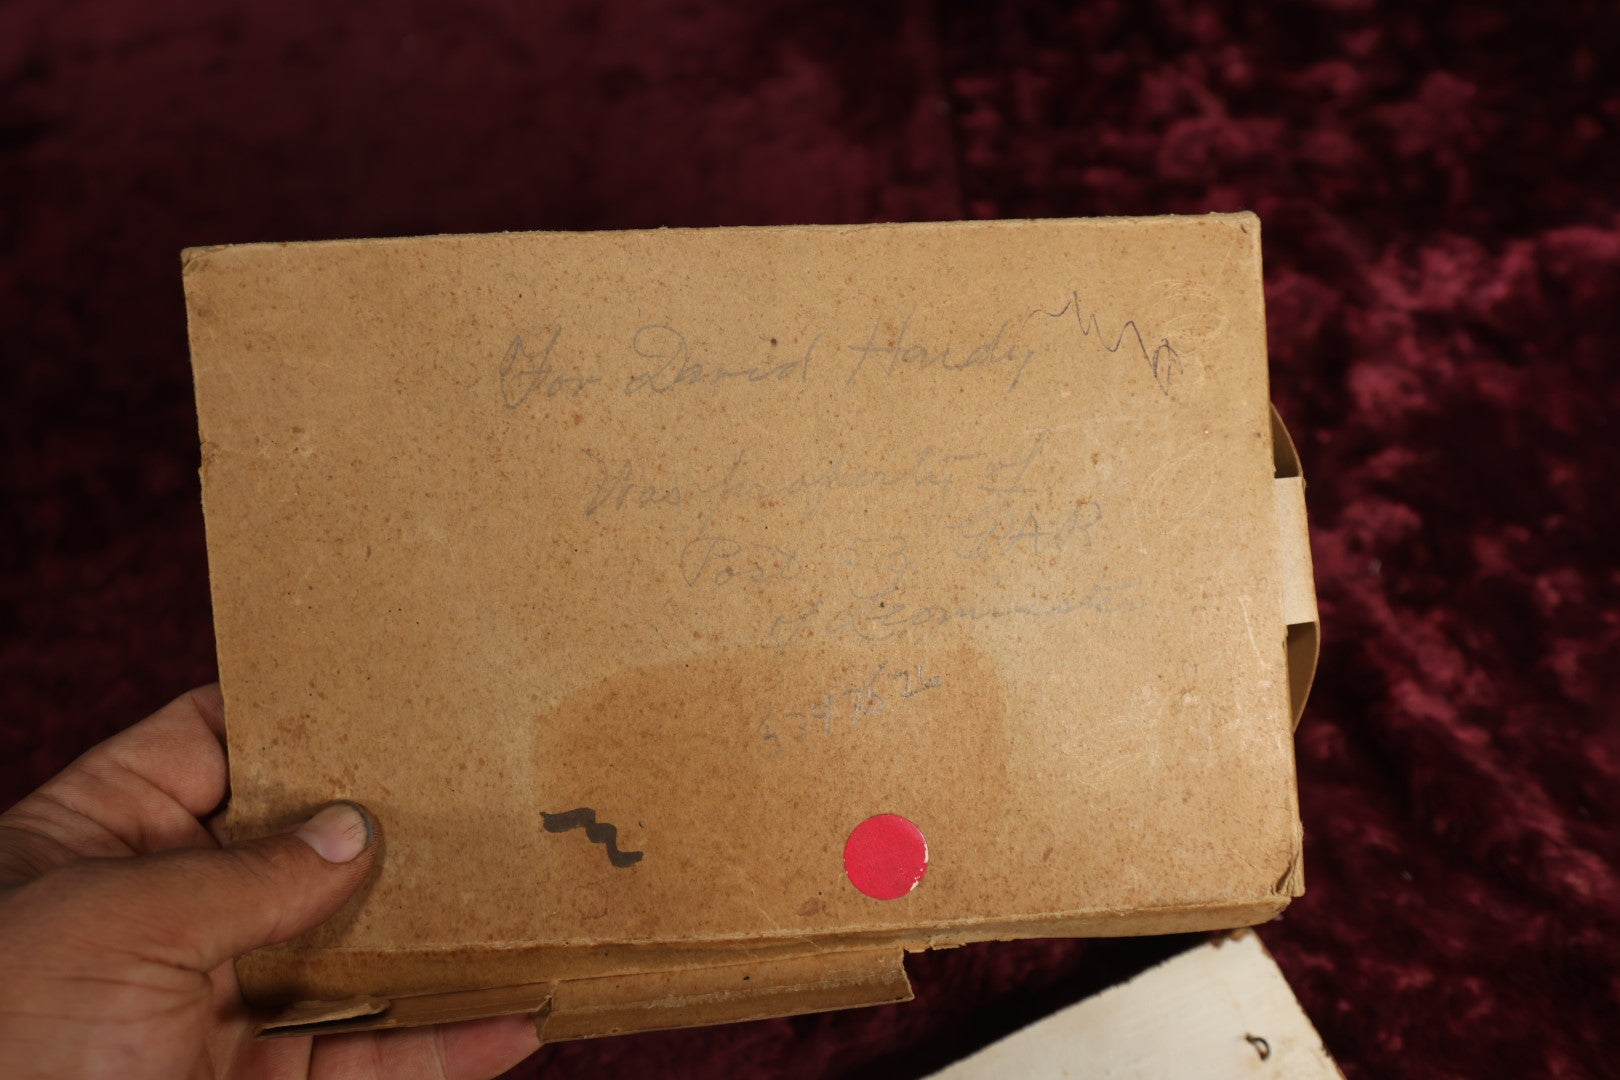 For David Hardy
Was property of
Post 53 GAR
of Leominster